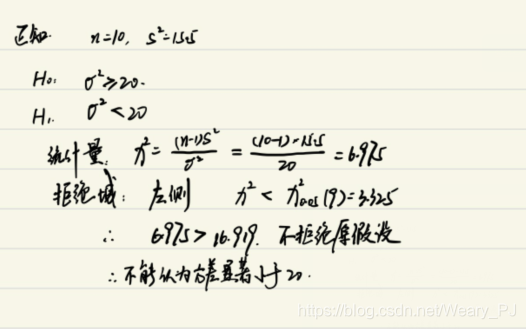 已知: n=10, s²=15.5
H₀: σ²≥20.
H₁: σ²<20
统计量: χ² = (n-1)s²/σ² = (10-1)·15.5/20 = 6.975
拒绝域: 左侧 χ² < χ²₀.₀₅(9)=3.325
∴ 6.975>16.919. 不拒绝原假设
∴ 不能认为方差显著小于20.
https://blog.csdn.net/Weary_PJ